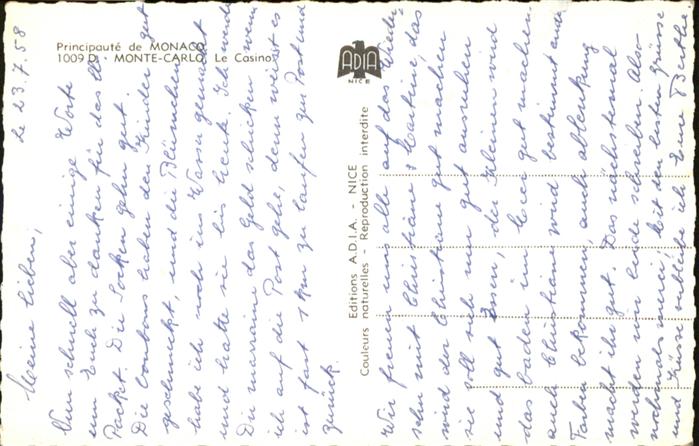 Principauté de MONACO
1009 D - MONTE-CARLO, Le Casino
ADIA
NICE
Editions A.D.I.A. - NICE
Couleurs naturelles - Reproduction interdite
Le 23.7.58
Meine lieben,
Nun schnell aber einige Worte
um Euch zu danken für das
Packet. Die Socken gehen gut.
Die bonbons haben den Kinder gut
geschmeckt, und die Blümchen
habe ich noch ins Wasser gemacht
und hatte sie bis heute. Ich werde
Die marraine das Geld schicken wenn
ich auf die Post gehe, denn wisst es
ist fast 1 km zu laufen zur Post und
zurück.
Wir freuen uns alle auf das Wieder-
sehn mit Christiane & Martine, das
wird der Christiane gut machen
sie soll sich nur gut ausruhen
und gut Essen, der Kleinen wird
das baden im Meer gut machen
auch Christiane wird bestimmt andere
Farben bekommen, auch ablenkung
macht ihr gut. Das nächstemal
werden wir beide schreiben. Also
nochmals merci, mit den besten Grüsse
und Küsse verbleibe ich Eure Berthe